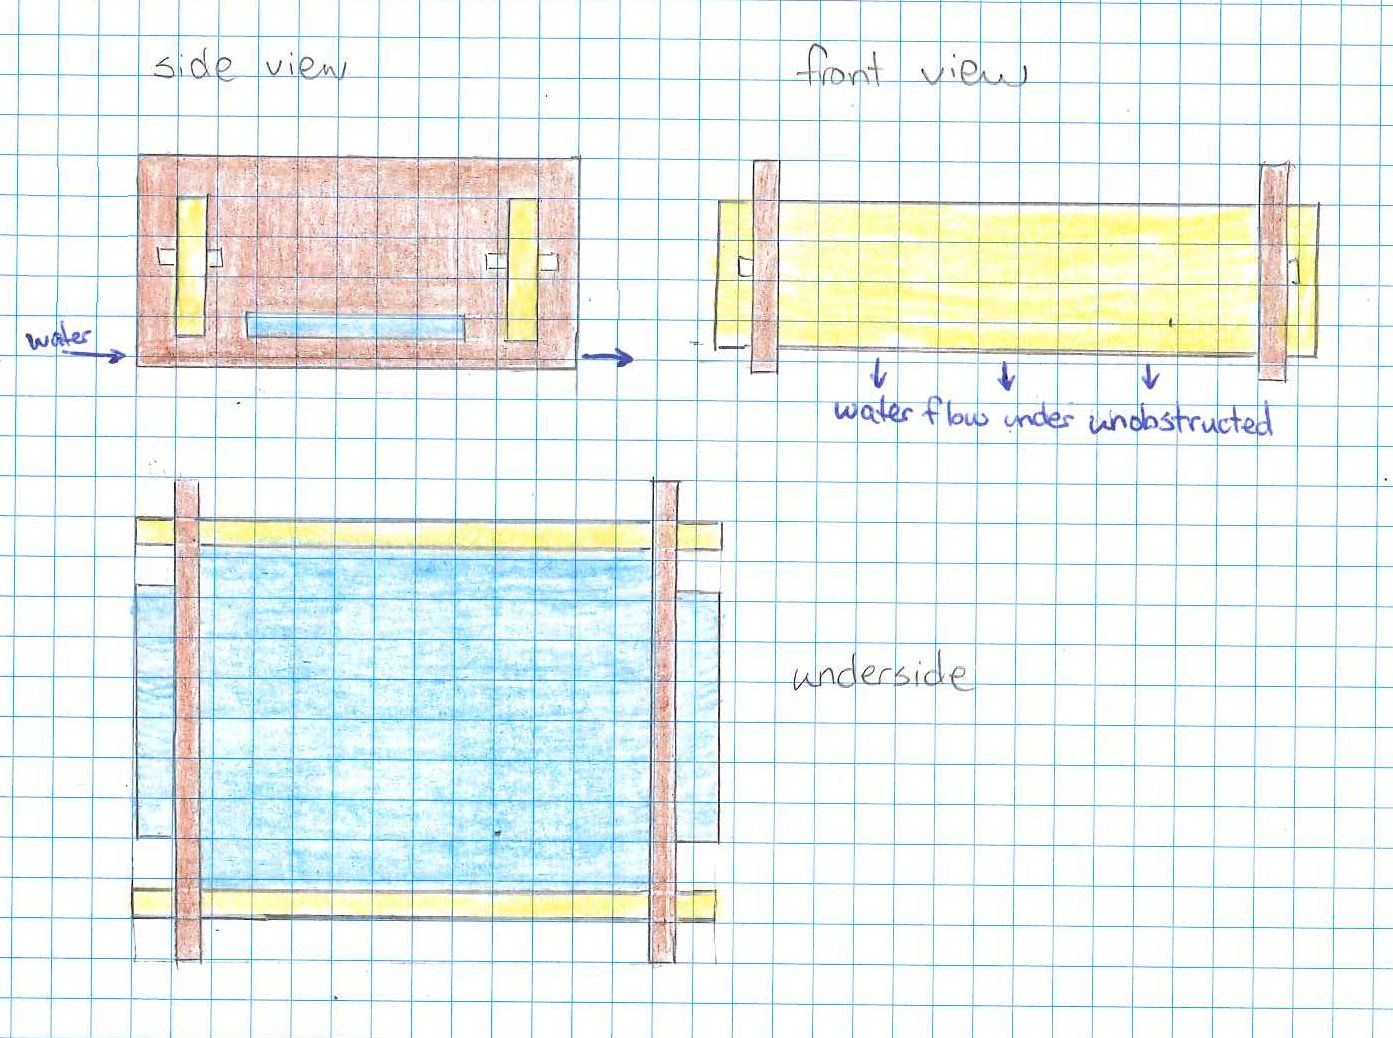 side view
front view
water
water flow under unobstructed
underside